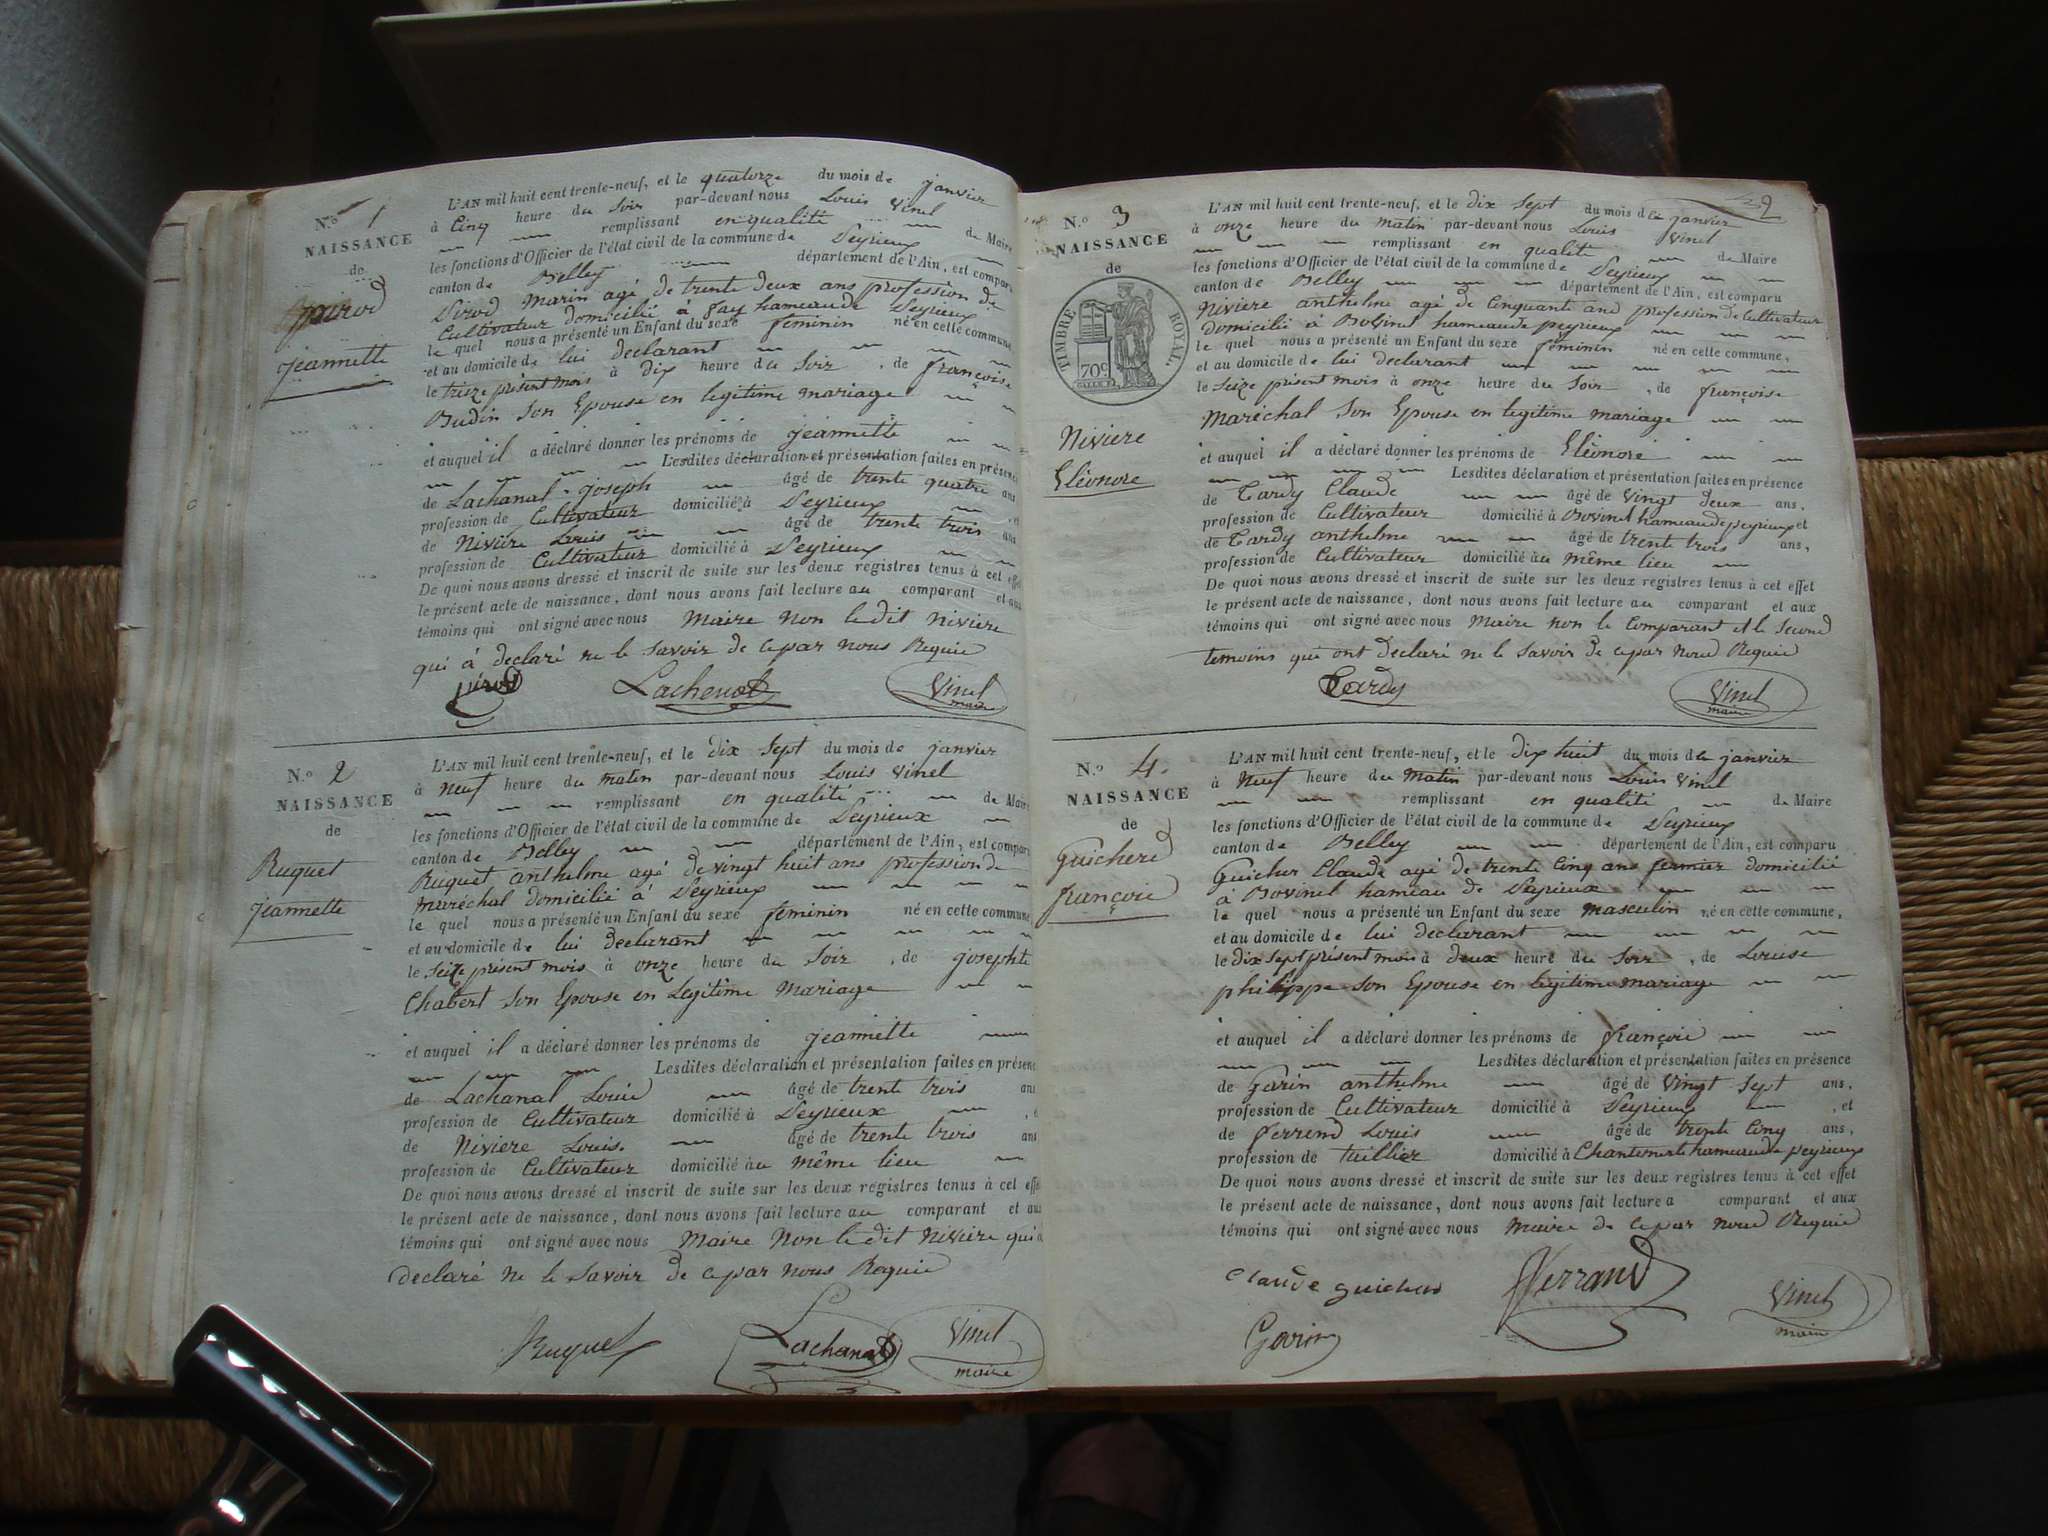 N.º 1
NAISSANCE
de
pirod
jeannette
L'AN mil huit cent trente-neuf, et le quatorze du mois de janvier
à Cinq heure du soir par-devant nous Louis Vinel
remplissant en qualité de Maire
les fonctions d'Officier de l'état civil de la commune de Peyrieux
canton de Belley département de l'Ain, est comparu
Pirod Marin agé de trente deux ans profession de
Cultivateur domicilié à fay hameau de Peyrieux
le quel nous a présenté un Enfant du sexe feminin né en cette commune,
et au domicile de lui declarant
le treize présent mois à dix heure du Soir, de françoise
Budin son Epouse en legitime mariage
et auquel il a déclaré donner les prénoms de jeannette
Lesdites déclaration et présentation faites en présence
de Lachanal joseph âgé de trente quatre ans
profession de Cultivateur domicilié à Peyrieux et
de Nivière Louis âgé de trente trois ans
profession de Cultivateur domicilié à Peyrieux
De quoi nous avons dressé et inscrit de suite sur les deux registres tenus à cet effet
le présent acte de naissance, dont nous avons fait lecture au comparant et aux
témoins qui ont signé avec nous Maire non le dit Nivière
qui à declaré ne le savoir de ce par nous Requis
Pirod Lachenal Vinel
maire
N.º 2
NAISSANCE
de
Ruquet
jeannette
L'AN mil huit cent trente-neuf, et le dix sept du mois de janvier
à neuf heure du matin par-devant nous Louis Vinel
remplissant en qualité de Maire
les fonctions d'Officier de l'état civil de la commune de Peyrieux
canton de Belley département de l'Ain, est comparu
Ruquet anthelme agé de vingt huit ans profession de
maréchal domicilié à Peyrieux
le quel nous a présenté un Enfant du sexe feminin né en cette commune
et au domicile de lui declarant
le Seize présent mois à onze heure du Soir, de josephte
Chabert son Epouse en Legitime Mariage
et auquel il a déclaré donner les prénoms de jeannette
Lesdites déclaration et présentation faites en présence
de Lachanal Louis âgé de trente trois ans
profession de Cultivateur domicilié à Peyrieux
de Niviere Louis. âgé de trente trois ans
profession de Cultivateur domicilié au même lieu
De quoi nous avons dressé et inscrit de suite sur les deux registres tenus à cet effet
le présent acte de naissance, dont nous avons fait lecture au comparant et aux
témoins qui ont signé avec nous Maire Non le dit Niviere qui à
declaré ne le savoir de ce par nous Requis
Ruquet Lachanal Vinel
maire
2
N.º 3
NAISSANCE
de
TIMBRE ROYAL.
70c
Niviere
Eléonore
L'AN mil huit cent trente-neuf, et le dix sept du mois de janvier
à onze heure du matin par-devant nous Louis Vinel
remplissant en qualité de Maire
les fonctions d'Officier de l'état civil de la commune de Peyrieux
canton de Belley département de l'Ain, est comparu
Niviere anthelme agé de Cinquante ans profession de Cultivateur
domicilié à Bovinel hameau de peyrieux
le quel nous a présenté un Enfant du sexe feminin né en cette commune,
et au domicile de lui declarant
le seize présent mois à onze heure du Soir, de françoise
Maréchal Son Epouse en legitime mariage
et auquel il a déclaré donner les prénoms de Eléonore
Lesdites déclaration et présentation faites en présence
de Tardy Claude âgé de vingt deux ans,
profession de Cultivateur domicilié à Bovinel hameau de peyrieux et
de Tardy anthelme âgé de trente trois ans,
profession de Cultivateur domicilié au même lieu
De quoi nous avons dressé et inscrit de suite sur les deux registres tenus à cet effet
le présent acte de naissance, dont nous avons fait lecture au comparant et aux
témoins qui ont signé avec nous Maire non le Comparant et le second
temoins qui ont declaré ne le savoir de ce par nous Requis
Tardy Vinel
maire
N.º 4.
NAISSANCE
de
Guicherd
françois
L'AN mil huit cent trente-neuf, et le dix huit du mois de janvier
à Neuf heure du Matin par-devant nous Louis Vinel
remplissant en qualité de Maire
les fonctions d'Officier de l'état civil de la commune de Peyrieux
canton de Belley département de l'Ain, est comparu
Guicher Claude agé de trente Cinq ans fermier domicilié
à Bovinel hameau de Peyrieux
le quel nous a présenté un Enfant du sexe masculin né en cette commune,
et au domicile de lui declarant
le dix sept présent mois à deux heure du Soir, de Louise
philippe son Epouse en legitime mariage
et auquel il a déclaré donner les prénoms de françois
Lesdites déclaration et présentation faites en présence
de Garin anthelme âgé de vingt sept ans,
profession de Cultivateur domicilié à Peyrieux, et
de ferrend Louis âgé de trente Cinq ans,
profession de tuillier domicilié à Chantemerle hameau de peyrieux
De quoi nous avons dressé et inscrit de suite sur les deux registres tenus à cet effet
le présent acte de naissance, dont nous avons fait lecture a comparant et aux
témoins qui ont signé avec nous Maire de ce par nous Requis
Claude guicherd ferrand Vinel
maire
Garin